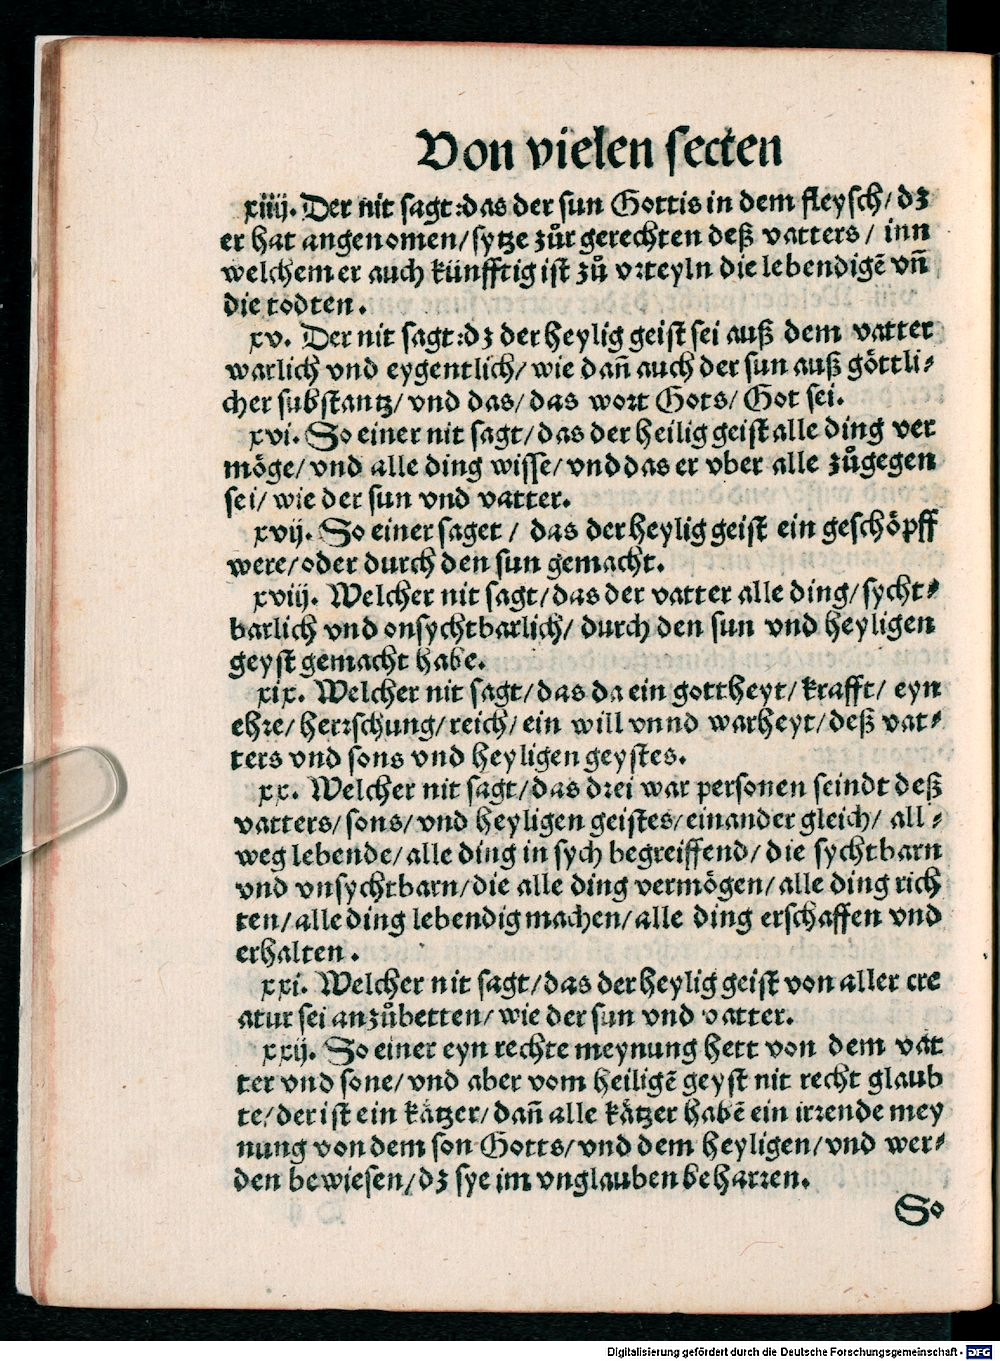 Von vielen secten
xiiij. Der nit sagt: das der sun Gottis in dem fleysch/ dz
er hat angenomen/ sytze zůr gerechten deß vatters/ inn
welchem er auch künfftig ist zů vrteyln die lebendigē vñ
die todten.
xv. Der nit sagt: dz der heylig geist sei auß dem vatter
warlich vnd eygentlich/ wie dañ auch der sun auß göttli⸗
cher substantz/ vnd das/ das wort Gots/ Got sei.
xvi. So einer nit sagt/ das der heilig geist alle ding ver
möge/ vnd alle ding wisse/ vnd das er vber alle zůgegen
sei/ wie der sun vnd vatter.
xvij. So einer saget / das der heylig geist ein geschöpff
were/ oder durch den sun gemacht.
xviij. Welcher nit sagt/ das der vatter alle ding/ sycht⸗
barlich vnd onsychtbarlich/ durch den sun vnd heyligen
geyst gemacht habe.
xix. Welcher nit sagt/ das da ein gottheyt/ krafft/ eyn
ehre/ herrschung/ reich/ ein will vnnd warheyt/ deß vat⸗
ters vnd sons vnd heyligen geystes.
xx. Welcher nit sagt/ das drei war personen seindt deß
vatters/ sons/ vnd heyligen geistes/ einander gleich/ all⸗
weg lebende/ alle ding in sych begreiffend/ die sychtbarn
vnd vnsychtbarn/ die alle ding vermögen/ alle ding rich
ten/ alle ding lebendig machen/ alle ding erschaffen vnd
erhalten.
xxi. Welcher nit sagt/ das der heylig geist von aller cre
atur sei anzůbetten/ wie der sun vnd vatter.
xxij. So einer eyn rechte meynung hett von dem vat
ter vnd sone/ vnd aber vom heiligē geyst nit recht glaub
te/ der ist ein kätzer/ dañ alle kätzer habē ein irrende mey
nung von dem son Gotts/ vnd dem heyligen/ vnd wer⸗
den bewiesen/ dz sye im vnglauben beharren.
So
Digitalisierung gefördert durch die Deutsche Forschungsgemeinschaft - DFG